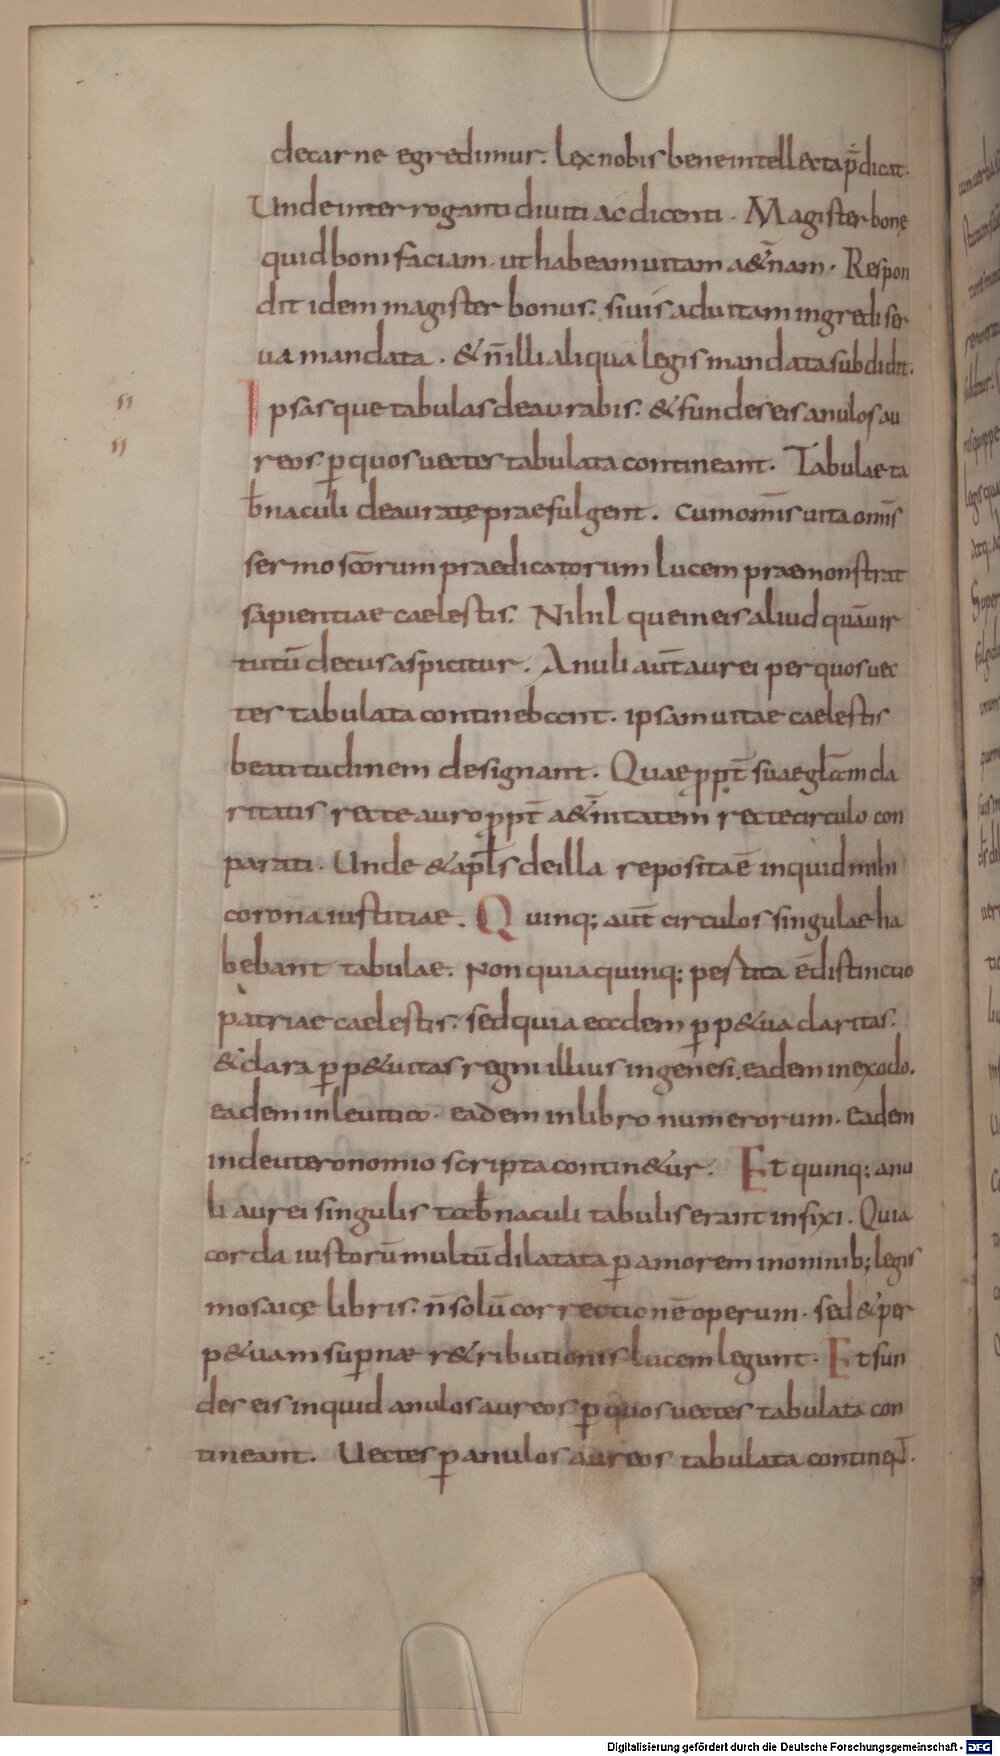 decarne egredimur. lex nobis bene intellecta p̄dicat.
Unde interroganti diuiti ac dicenti. Magister bone
quid boni faciam. ut habeam uitam a&̄nam. Respon
dit idem magister bonus. si uis ad uitam ingredi ser
ua mandata. & n̄ illi aliqua legis mandata subdidit.
Ipsasque tabulas deaurabis. & fundes eis anulos au
reos. ꝑ quos uectes tabulata contineant. Tabulae ta
b̄naculi deauratę praefulgent. cum om̄is uita om̄is
sermo sc̄orum praedicatorum lucem praemonstrat
sapientiae caelestis. Nihilque in eis aliud quā uir
tutū decus aspicitur. Anuli aut̄ aurei per quos uec
tes tabulata continebant. ipsam uitae caelestis
beatitudinem designant. Quae ꝓpt̄ suae gl̄am cla
ritatis recte auro ꝓpt̄ a&̄nitatem recte circulo con
parati. Unde & apl̄s de illa reposita ē inquid mihi
corona iustitiae. Quinq; aut̄ circulos singulae ha
bebant tabulae. Non quia quinq; pestita ē distinctio
patriae caelestis. sed quia eadem ꝑp&ua claritas.
& clara ꝑp&uitas regni illius in genesi. eadem in exodo.
eadem in leuitico. eadem in libro numerorum. eadem
in deuteronomio scripta contin&ur. Et quinq; anu
li aurei singulis tab̄naculi tabulis erant infixi. Quia
corda iustorū multū dilatata ꝑ amorem in omnib; legis
mosaicę libris. n̄ solū correctionē operum. sed & per
p&uam suꝑnæ r&ributionis lucem legunt. Et fun
des eis inquid anulos aureos ꝑ quos uectes tabulata con
tineant. Uectes ꝑ anulos aureos tabulata continent.
Digitalisierung gefördert durch die Deutsche Forschungsgemeinschaft - DFG